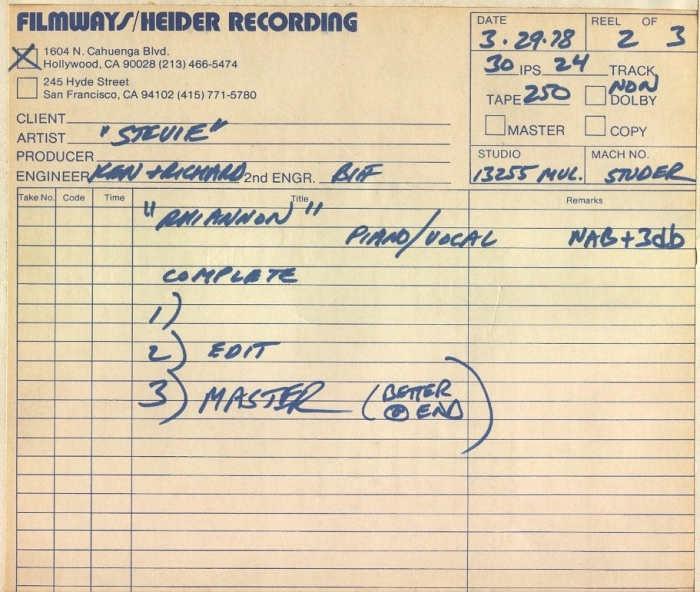 FILMWAYS/HEIDER RECORDING
1604 N. Cahuenga Blvd.
Hollywood, CA 90028 (213) 466-5474
245 Hyde Street
San Francisco, CA 94102 (415) 771-5780
CLIENT
ARTIST "STEVIE"
PRODUCER
ENGINEER KEN + RICHARD 2nd ENGR. BIF
DATE 3.29.78
REEL 2 OF 3
30 IPS 24 TRACK
TAPE 250 NON DOLBY
MASTER COPY
STUDIO 13255 MUL.
MACH NO. STUDER
Take No. Code Time Title Remarks
"RHIANNON"
PIANO/VOCAL NAB+3db
COMPLETE
1)
2) EDIT
3) MASTER (BETTER
@ END)